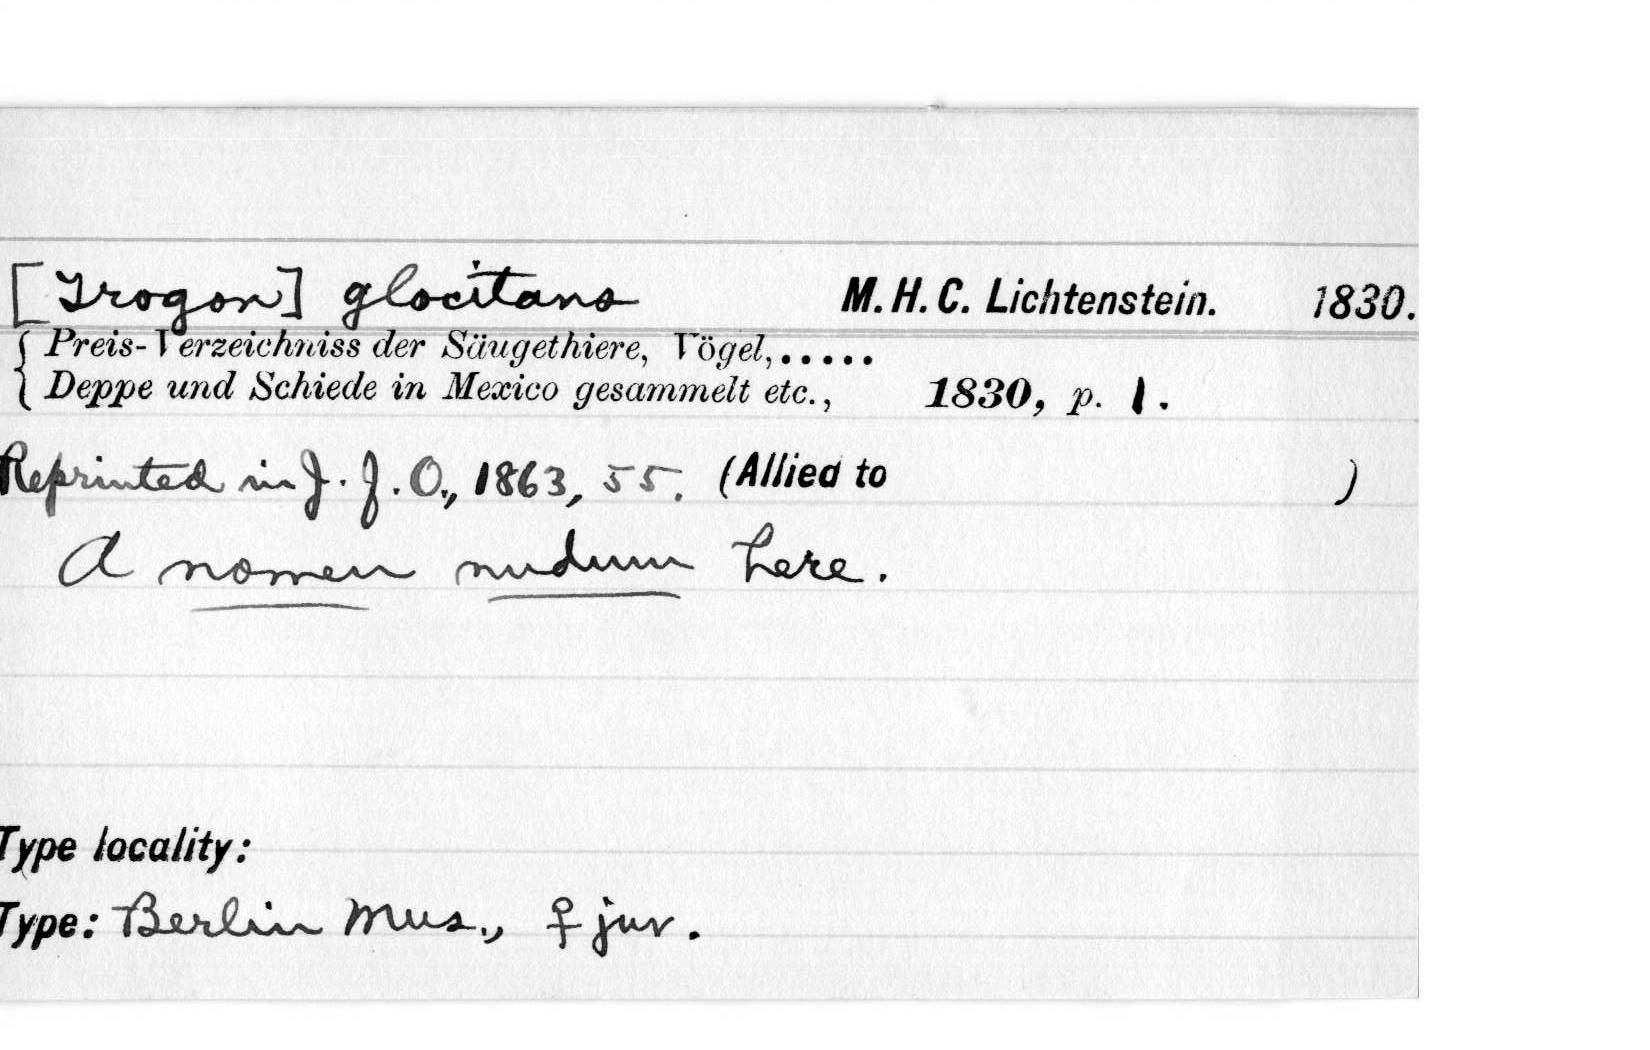 [Trogon] glocitans M. H. C. Lichtenstein. 1830.
Preis-Verzeichniss der Säugethiere, Vögel,.....
Deppe und Schiede in Mexico gesammelt etc., 1830, p. 1.
Reprinted in J. f. O., 1863, 55. (Allied to )
A nomen nudum here.
Type locality:
Type: Berlin Mus., ♀ juv.